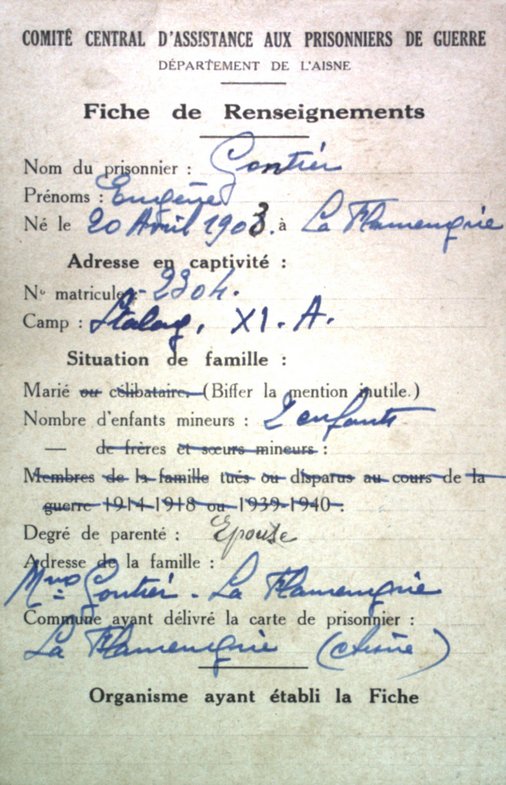 COMITÉ CENTRAL D'ASSISTANCE AUX PRISONNIERS DE GUERRE
DÉPARTEMENT DE L'AISNE
Fiche de Renseignements
Nom du prisonnier : Gontier
Prénoms : Eugène
Né le 20 Avril 1903. à La Flamengrie
Adresse en captivité :
No matricule : 2304.
Camp : Stalag. XI. A.
Situation de famille :
Marié ou célibataire. (Biffer la mention inutile.)
Nombre d'enfants mineurs : 2 enfants
— de frères et sœurs mineurs :
Membres de la famille tués ou disparus au cours de la
guerre 1914-1918 ou 1939-1940 :
Degré de parenté : Epouse
Adresse de la famille :
Mme Gontier - La Flamengrie
Commune ayant délivré la carte de prisonnier :
La Flamengrie (Aisne)
Organisme ayant établi la Fiche